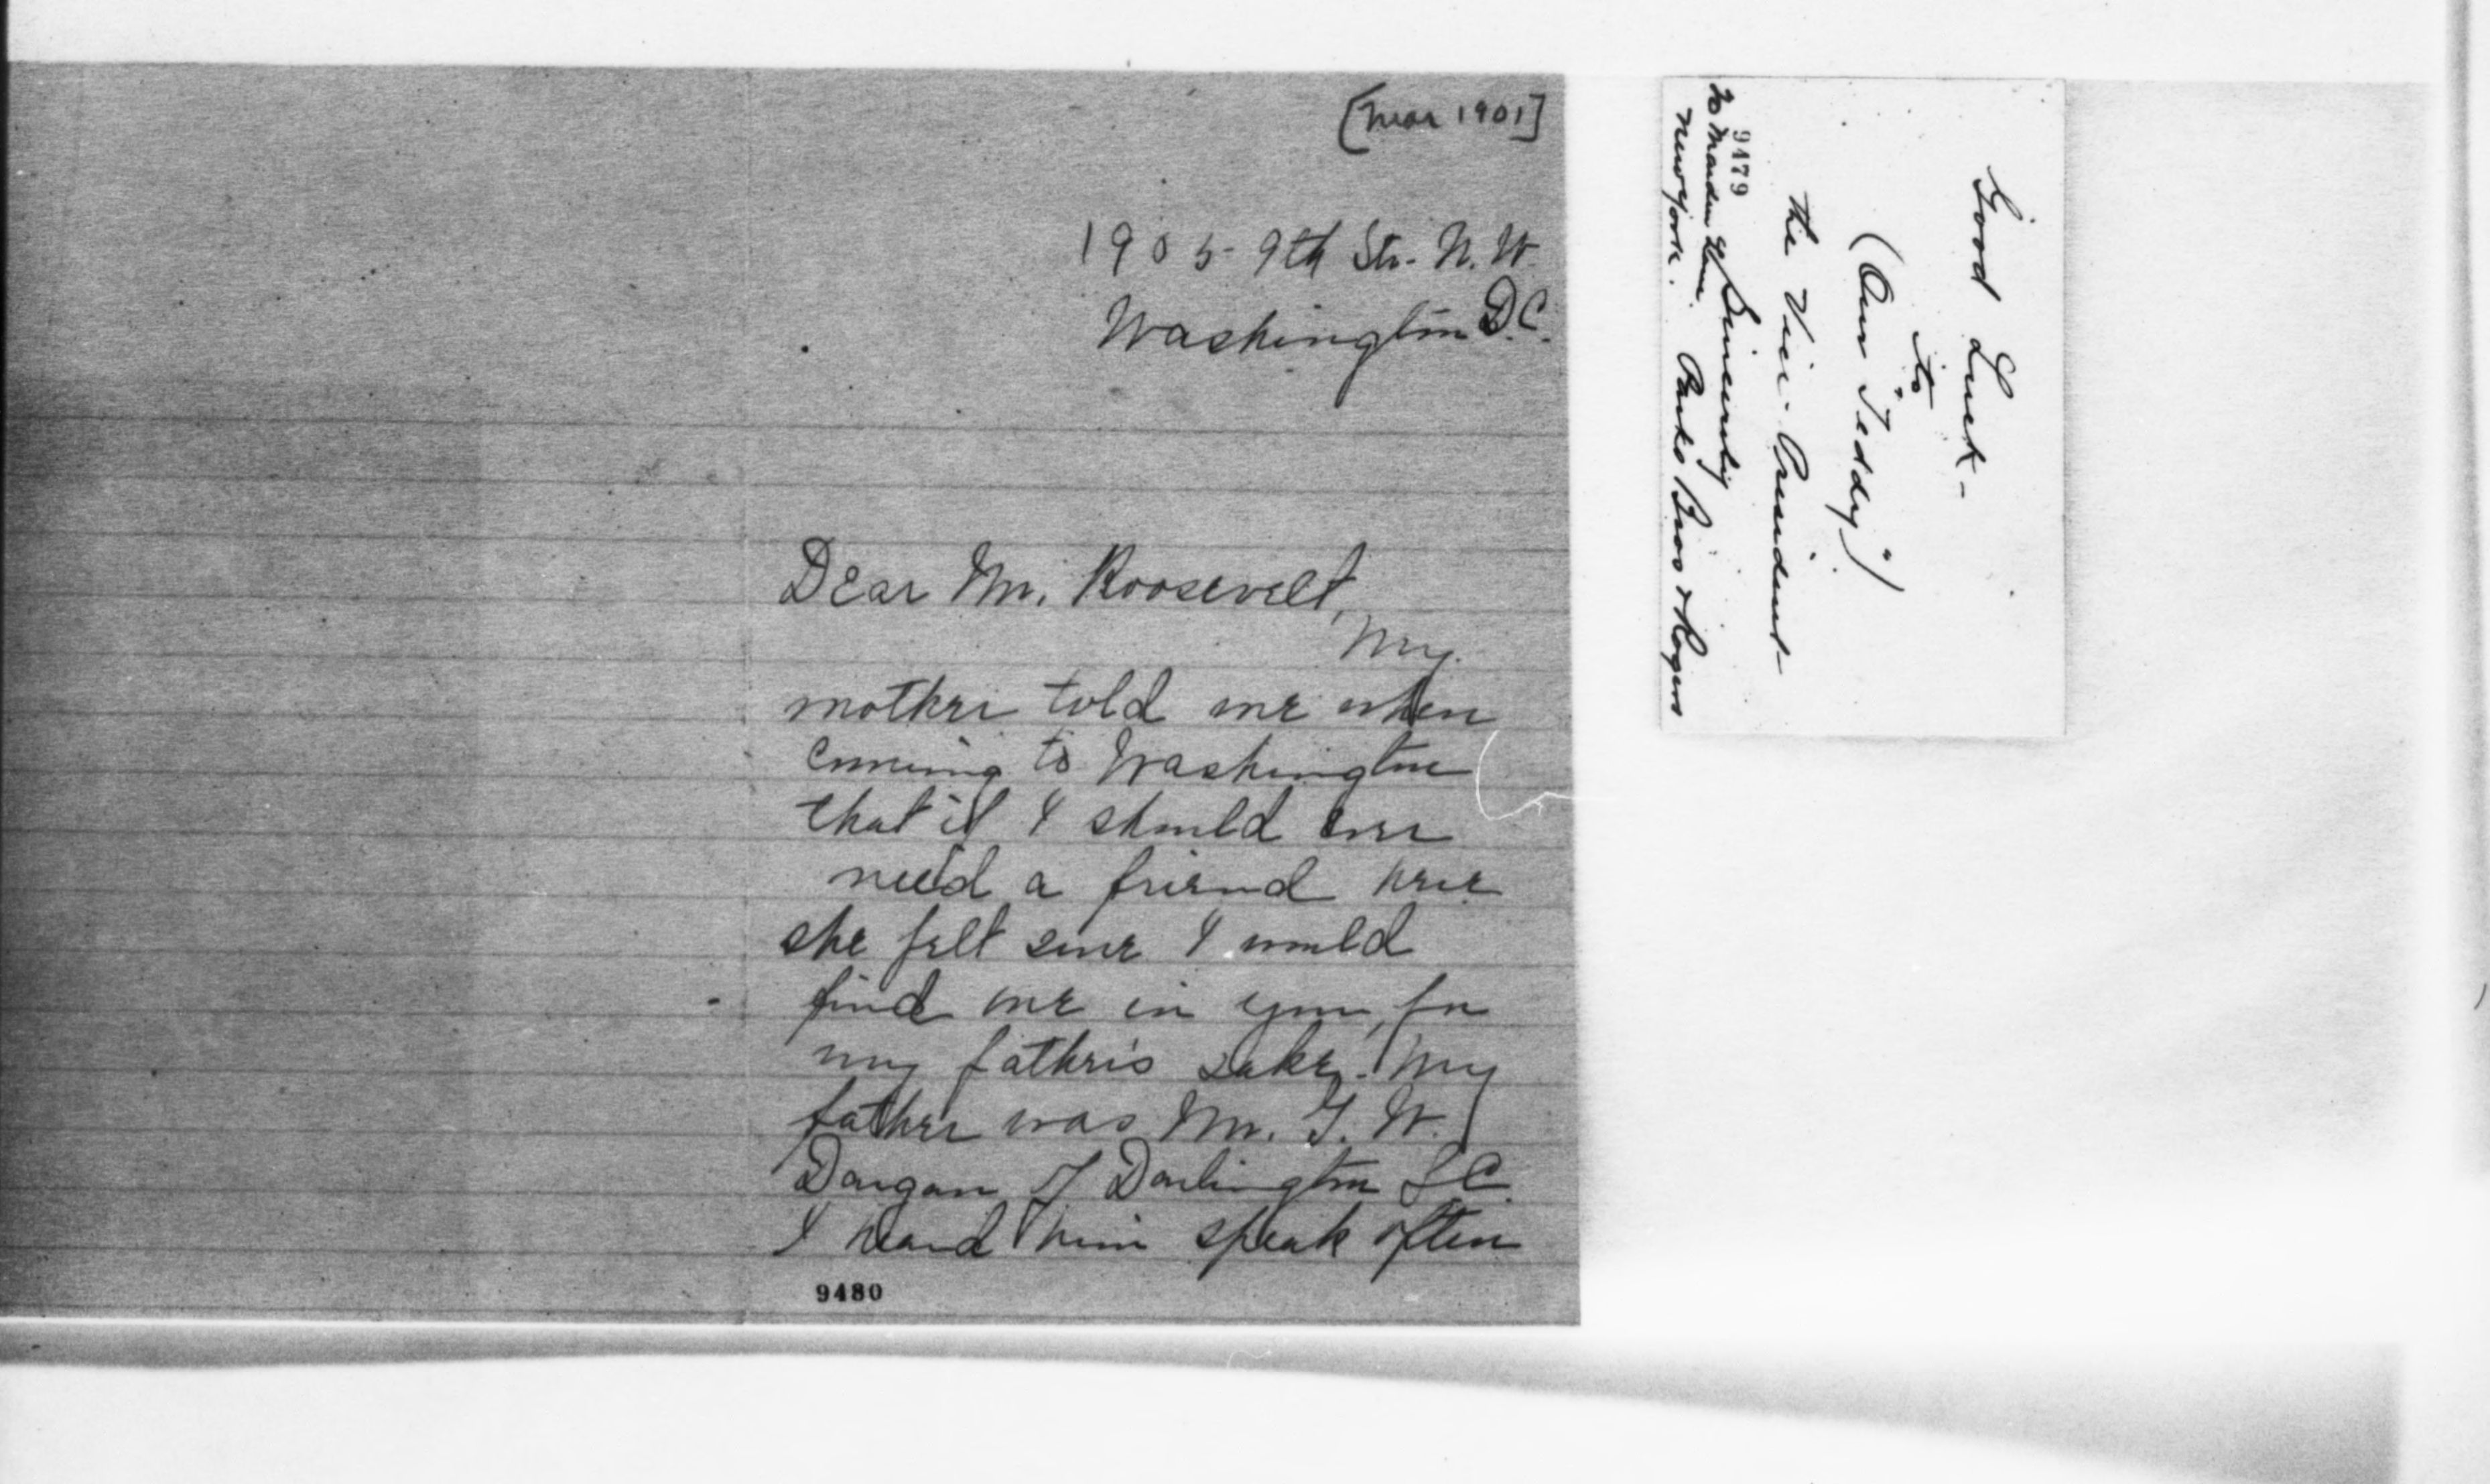 [Mar 1901]
1905- 9th Str. N.W.
Washington D.C.
Dear Mr. Roosevelt,
My
mother told me when
coming to Washington
that if I should ever
need a friend here
she felt sure I would
find one in you, for
my father's sake. My
father was Mr. G. W.
Dargan of Darlington S.C.
I heard him speak often
9480
Good Luck-
to
(Our "Teddy")
The Vice-President-
Sincerely
Parke Bros & Rogers
9479
New York.